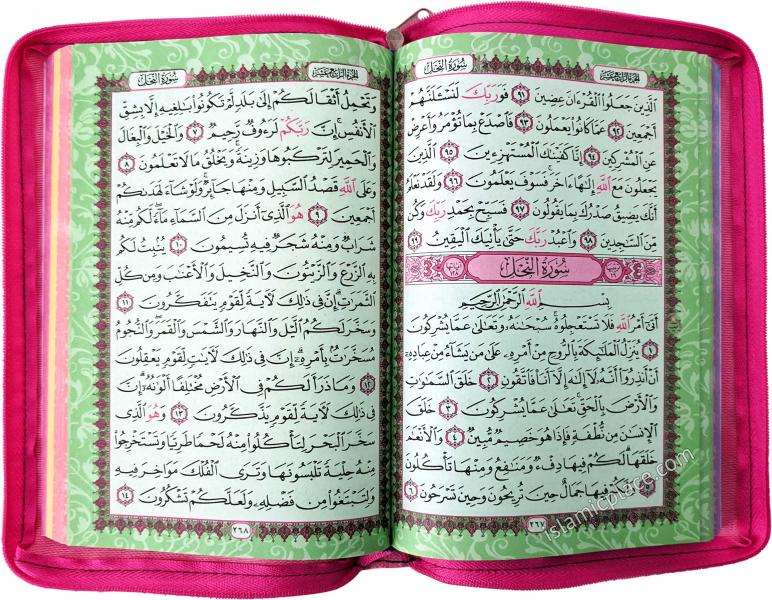 سورة النحل الجزء الرابع عشر
الذين جعلوا القرءان عضين ٩١ فوربك لنسئلنهم
أجمعين ٩٢ عما كانوا يعملون ٩٣ فاصدع بما تؤمر وأعرض
عن المشركين ٩٤ إنا كفيناك المستهزءين ٩٥ الذين
يجعلون مع الله إلها ءاخر فسوف يعلمون ٩٦ ولقد نعلم
أنك يضيق صدرك بما يقولون ٩٧ فسبح بحمد ربك وكن
من الساجدين ٩٨ واعبد ربك حتى يأتيك اليقين ٩٩
سورة النحل
بسم الله الرحمن الرحيم
أتى أمر الله فلا تستعجلوه سبحانه وتعالى عما يشركون
١ ينزل الملائكة بالروح من أمره على من يشاء من عباده
أن أنذروا أنه لا إله إلا أنا فاتقون ٢ خلق السماوات
والأرض بالحق تعالى عما يشركون ٣ خلق
الإنسان من نطفة فإذا هو خصيم مبين ٤ والأنعام
خلقها لكم فيها دفء ومنافع ومنها تأكلون
٥ ولكم فيها جمال حين تريحون وحين تسرحون ٦
٢٦٧
سورة النحل الجزء الرابع عشر
وتحمل أثقالكم إلى بلد لم تكونوا بالغيه إلا بشق
الأنفس إن ربكم لرءوف رحيم ٧ والخيل والبغال
والحمير لتركبوها وزينة ويخلق ما لا تعلمون ٨
وعلى الله قصد السبيل ومنها جائر ولو شاء لهداكم
أجمعين ٩ هو الذي أنزل من السماء ماء لكم منه
شراب ومنه شجر فيه تسيمون ١٠ ينبت لكم
به الزرع والزيتون والنخيل والأعناب ومن كل
الثمرات إن في ذلك لآية لقوم يتفكرون ١١
وسخر لكم الليل والنهار والشمس والقمر والنجوم
مسخرات بأمره إن في ذلك لآيات لقوم يعقلون
١٢ وما ذرأ لكم في الأرض مختلفا ألوانه إن
في ذلك لآية لقوم يذكرون ١٣ وهو الذي
سخر البحر لتأكلوا منه لحما طريا وتستخرجوا
منه حلية تلبسونها وترى الفلك مواخر فيه
ولتبتغوا من فضله ولعلكم تشكرون ١٤
٢٦٨
islamicplace.com